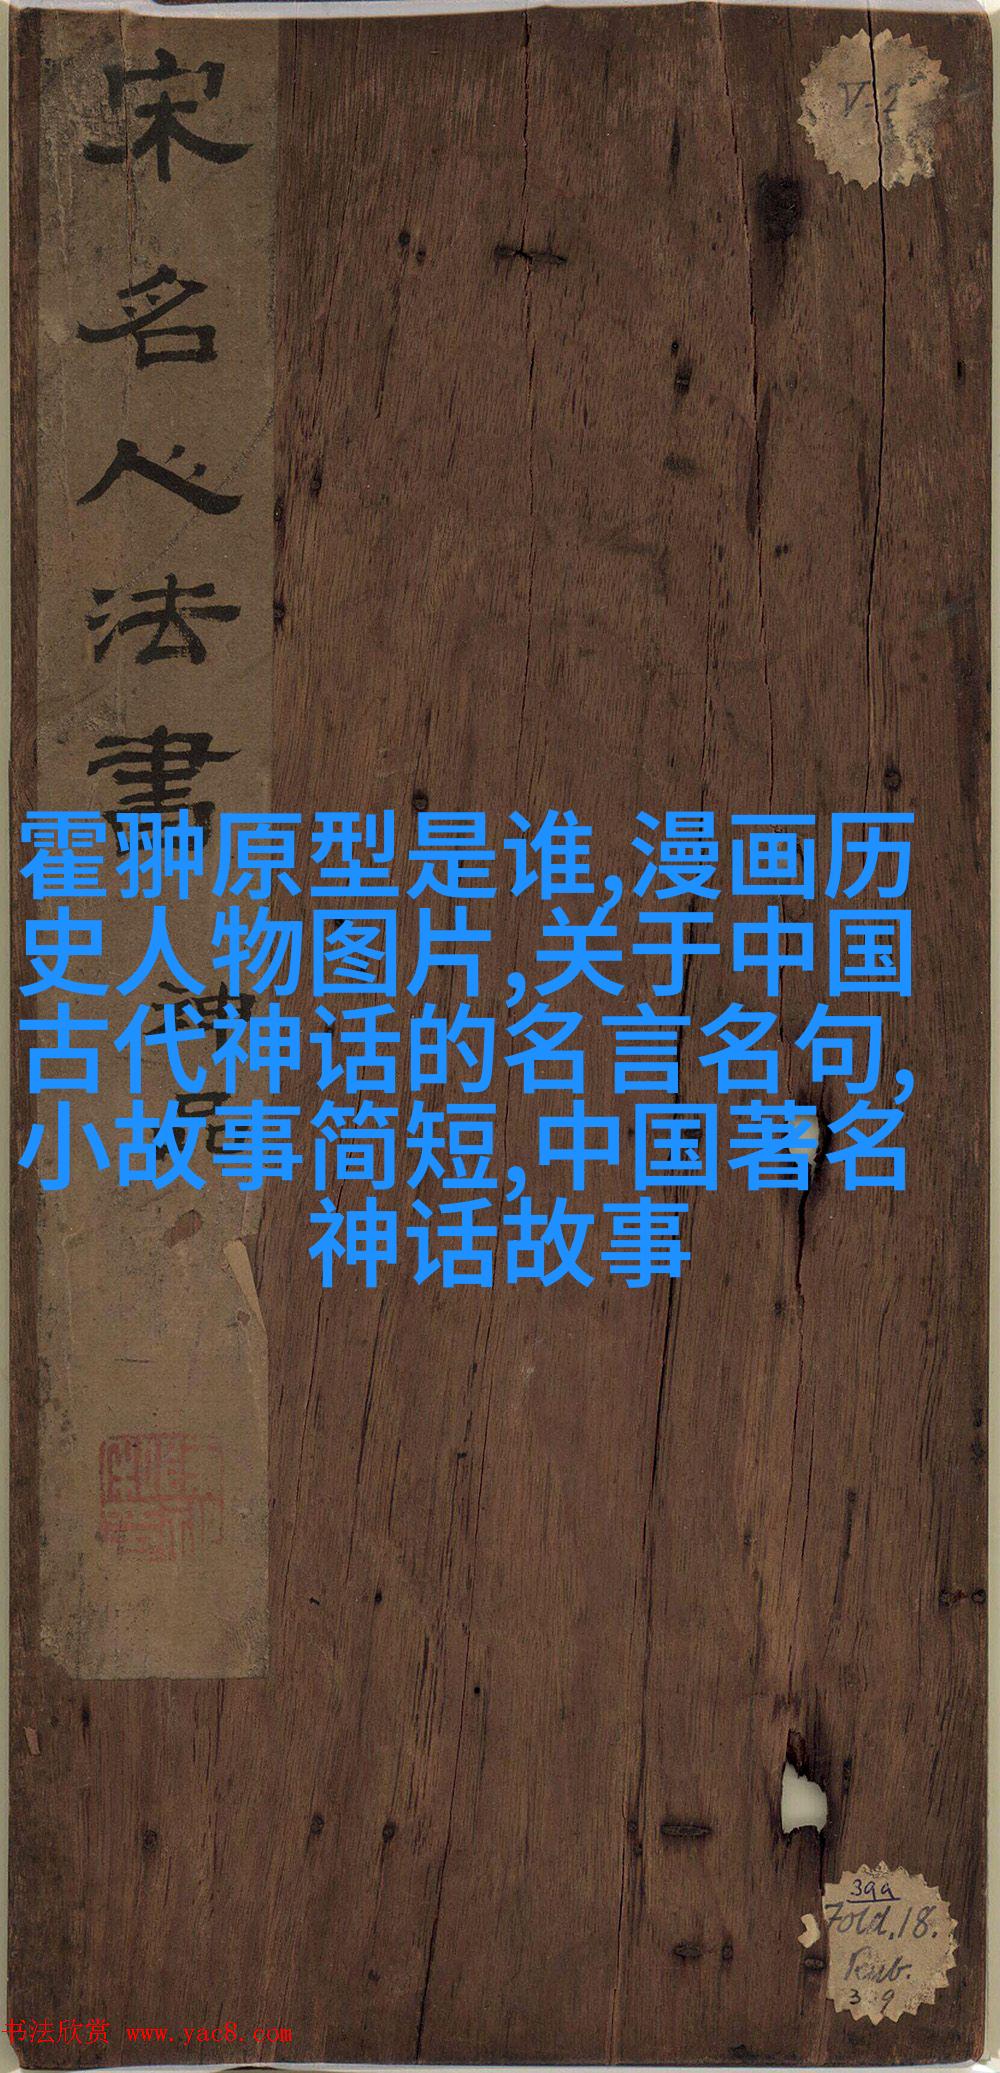 宋名人法書
神品
霍翀原型是谁,漫画历
史人物图片,关于中国
古代神话的名言名句,
小故事简短,中国著名
神话故事
V-2
399
Fold.18.
Rub.
书法欣赏 www.yac8.com